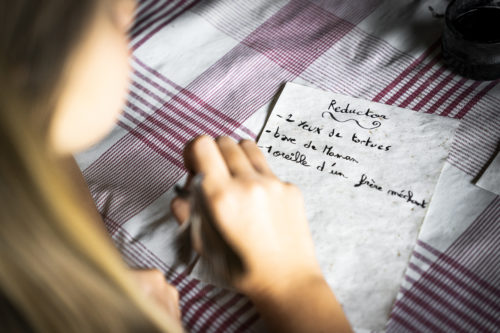 Reducton
- 2 yeux de tortues
- bave de Maman
- 1 oreille d'un frère méchant